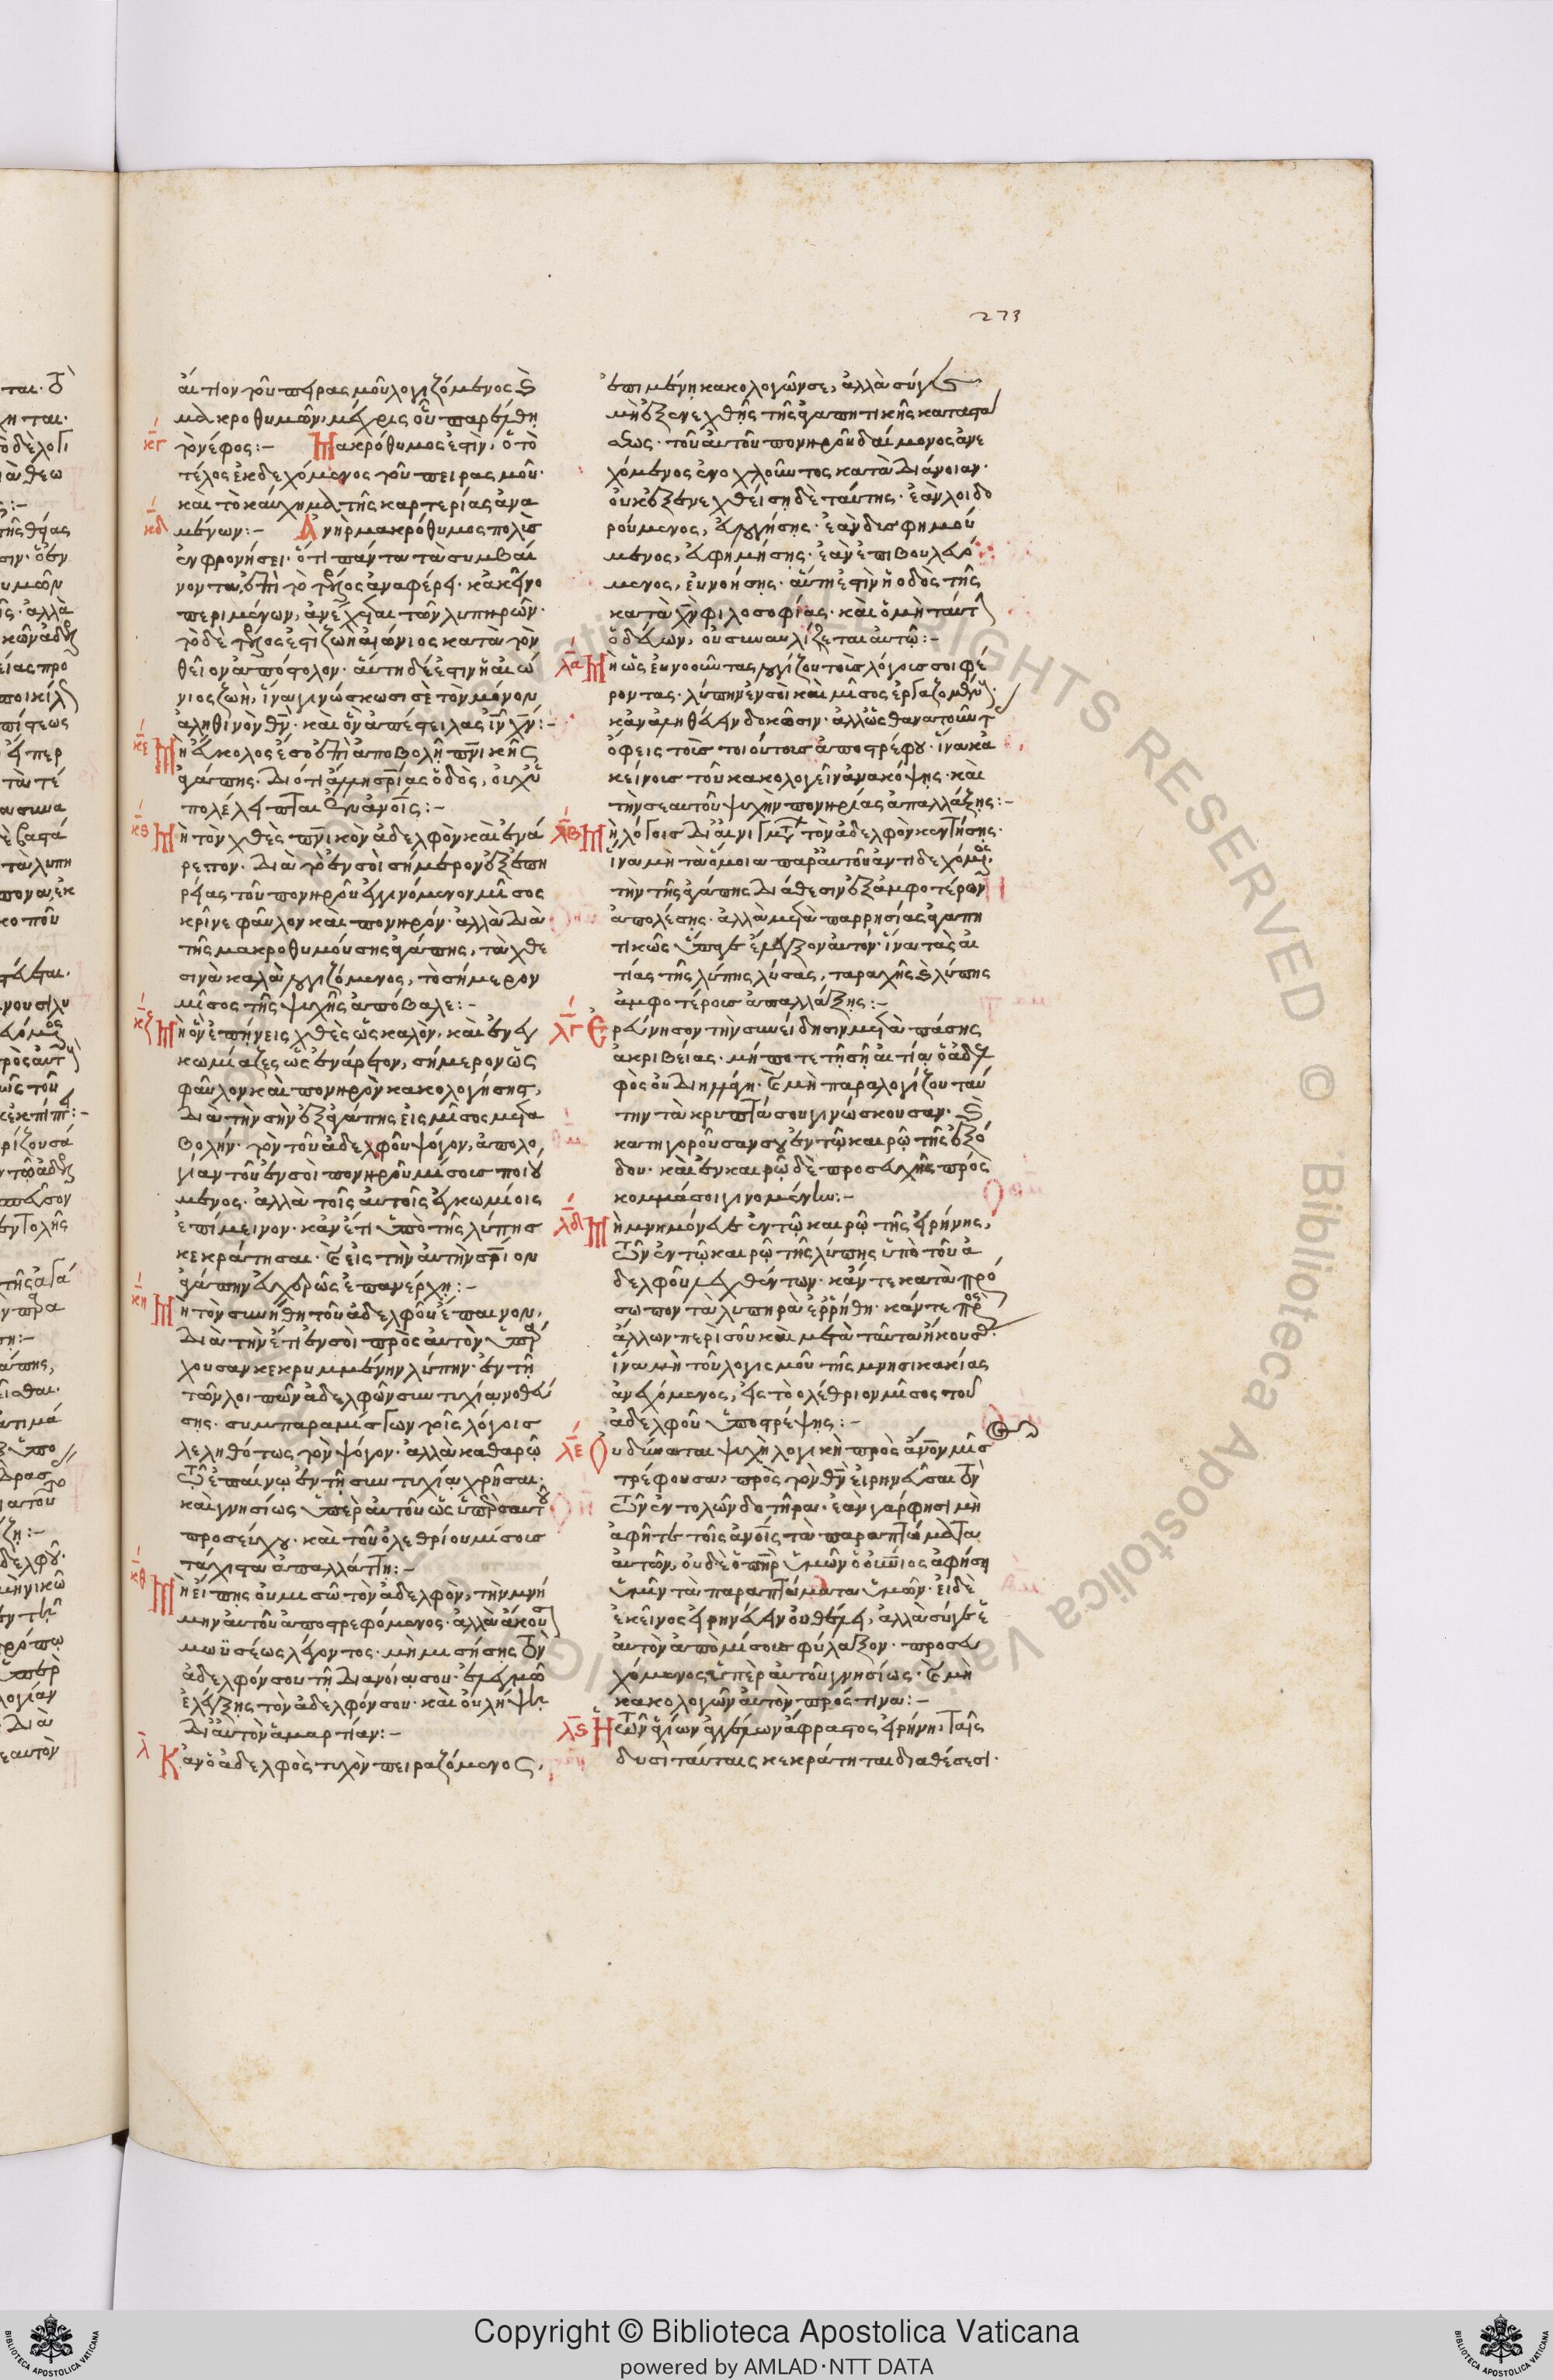 273
αἴτιον τοῦ πειρασμοῦ λογιζόμενος κ
μακροθυμῶν, μέχρις οὗ παρέλθη
κγ τὸ νέφος:- Μακρόθυμος ἐστὶν, ὁ τὸ
τέλος ἐκδεχόμενος τοῦ πειρασμοῦ.
καὶ τὸ καύχημα τῆς καρτερίας ἀνα
κδ μένων:- Ἀνὴρ μακρόθυμος πολὺς
ἐν φρονήσει. ὅτι πάντα τὰ συμβαί
νοντα, ἐπὶ τὸ τέλος ἀναφέρει. κἀκεῖνο
περιμένων, ἀνέχεται τῶν λυπηρῶν.
τὸ δὲ τέλος ἐστὶ ζωὴ αἰώνιος κατὰ τὸν
θεῖον ἀπόστολον. αὕτη δέ ἐστιν ἡ αἰώ
νιος ζωὴ, ἵνα γινώσκωσι σὲ τὸν μόνον
ἀληθινὸν θν. καὶ ὃν ἀπέστειλας ιν χν:-
κε Μὴ εὔκολος ἔσο ἐπὶ ἀποβολῇ πνικῆς
ἀγάπης. διότι ἄλλη σρίας ὁδὸς, οὐχ ὑ
πολέλειπται τοῖς ἀνοις:-
κς Μὴ τὸν χθὲς πνικὸν ἀδελφὸν καὶ ἐνά
ρετον. διὰ τὸ ἐν σοὶ σήμερον ἐξ ἐπη
ρείας τοῦ πονηροῦ ἐγγινόμενον μῖσος
κρῖνε φαῦλον καὶ πονηρόν. ἀλλὰ διὰ
τῆς μακροθυμούσης ἀγάπης, τὰ χθε
σινὰ καλὰ λογιζόμενος, τὸ σήμερον
μῖσος τῆς ψυχῆς ἀπόβαλε:-
κζ Μὴ ὃν ἐπήνεις χθὲς ὡς καλὸν, καὶ ἐνε
κωμίαζες ὡς ἐνάρετον, σήμερον ὡς
φαῦλον καὶ πονηρὸν κακολογήσης,
διὰ τὴν σὴν ἐξ ἀγάπης εἰς μῖσος μετα
βολήν. τὸν τοῦ ἀδελφοῦ ψόγον, ἀπολο
γίαν τοῦ ἐν σοὶ πονηροῦ μίσους ποιού
μενος. ἀλλὰ τοῖς αὐτοῖς ἐγκωμίοις
ἐπίμεινον. κἂν ἔτι ὑπὸ τῆς λύπης
κεκράτησαι. καὶ εἰς τὴν αὐτὴν σριον
ἀγάπην εὐχερῶς ἐπανέρχη:-
κη Μὴ τὸν συνήθη τοῦ ἀδελφοῦ ἔπαινον,
διὰ τὴν ἔτι ἐν σοὶ πρὸς αὐτὸν ὑπάρ
χουσαν κεκρυμμένην λύπην. ἐν τῆ
τῶν λοιπῶν ἀδελφῶν συντυχία νοθεύ
σης. συμπαραμίσγων τοῖς λόγοις
λεληθότως τὸν ψόγον. ἀλλὰ καθαρῶ
τῶ ἐπαίνω ἐν τῆ συντυχία χρῆσαι.
καὶ γνησίως ὑπὲρ αὐτοῦ ὡς ὑπὲρ σαυτοῦ
προσεύχου. καὶ τοῦ ὀλεθρίου μίσους
τάχιστα ἀπαλλάττη:-
κθ Μὴ εἴπης οὐ μισῶ τὸν ἀδελφὸν, τὴν μνή
μην αὐτοῦ ἀποστρεφόμενος. ἀλλὰ ἄκου
μωϋσέως λέγοντος. μὴ μισήσης τὸν
ἀδελφόν σου τῆ διανοία σου. ἐλεγμῶ
ἐλέγξης τὸν ἀδελφόν σου. καὶ οὐ λήψη
δι' αὐτὸν ἁμαρτίαν:-
λ Κἂν ὁ ἀδελφὸς τυχὸν πειραζόμενος,
ἐπιμένη κακολογῶν σε, ἀλλὰ σύ γε
μὴ ἐξενεχθῆς τῆς ἀγαπητικῆς καταστά
σεως. τοῦ αὐτοῦ πονηροῦ δαίμονος ἀνε
χόμενος ἐνοχλοῦντος κατὰ διάνοιαν.
οὐκ ἐξενεχθείση δὲ ταύτης. ἐὰν λοιδο
ρούμενος, εὐλογήσης. ἐὰν δισφημού
μενος, εὐφημήσης. ἐὰν ἐπιβουλευό
μενος, εὐνοήσης. αὕτη ἐστὶν ἡ ὁδὸς τῆς
κατὰ χν φιλοσοφίας. καὶ ὁ μὴ ταύτ
ὁδεύων, οὐ συναυλίζεται αὐτῶ:-
λα Μὴ ὡς εὐνοοῦντας λογίζου τοὺς λόγους σοι φέ
ροντας. λύπην ἐν σοὶ καὶ μῖσος ἐργαζομένους
κἂν ἀληθεύειν δοκῶσιν. ἀλλ' ὡς θανατοῦντ
ὄφεις τοὺς τοιούτους ἀποστρέφου. ἵνα κἀ
κείνους τοῦ κακολογεῖν ἀνακόψης. καὶ
τὴν σεαυτοῦ ψυχὴν πονηρίας ἀπαλλάξης:-
λβ Μὴ λόγοις δι' αἰνιγμάτων τὸν ἀδελφὸν κεντήσης.
ἵνα μὴ τὰ ὅμοια παρ' αὐτοῦ ἀντιδεχόμενος
τὴν τῆς ἀγάπης διάθεσιν ἐξ ἀμφοτέρων
ἀπολέσης. ἀλλὰ μετὰ παρρησίας ἀγαπη
τικῶς ὕπαγε ἔλεγξον αὐτόν. ἵνα τὰς αἰ
τίας τῆς λύπης λύσας, ταραχῆς κ λύπης
ἀμφοτέρους ἀπαλλάξης:-
λγ Ἐρεύνησον τὴν συνείδησιν μετὰ πάσης
ἀκριβείας. μή ποτε τῆ σῆ αἰτία ὁ ἀδελ
φὸς οὐ διηλλάγη. καὶ μὴ παραλογίζου ταύ
την τὰ κρυπτά σου γινώσκουσαν. κ
κατηγοροῦσαν σου ἐν τῶ καιρῶ τῆς ἐξό
δου. καὶ ἐν καιρῶ δὲ προσευχῆς πρόσ
κομμά σοι γινομένην:-
λδ Μὴ μνημόνευε ἐν τῶ καιρῶ τῆς εἰρήνης,
τῶν ἐν τῶ καιρῶ τῆς λύπης ὑπὸ τοῦ ἀ
δελφοῦ λεχθέντων. κἄν τε κατὰ πρό
σωπον τὰ λυπηρὰ ἐρρήθη. κἄν τε πρὸς
ἄλλων περὶ σοῦ καὶ μετὰ ταῦτα ἤκουσας.
ἵνα μὴ τοῦ λογισμοῦ τῆς μνησικακίας
ἀνεχόμενος, εἰς τὸ ὀλέθριον μῖσος τοῦ
ἀδελφοῦ ὑποστρέψης:-
λε Οὐ δύναται ψυχὴ λογικὴ πρὸς ἄνον μῖσ
τρέφουσα, πρὸς τὸν θν εἰρηνεῦσαι τὸν
τῶν ἐντολῶν δοτῆρα. ἐὰν γάρ φησι μὴ
ἀφῆτε τοῖς ἀνοις τὰ παραπτώματα
αὐτῶν, οὐδὲ ὁ πηρ ὑμῶν ὁ οὐνιος ἀφήση
ὑμῖν τὰ παραπτώματα ὑμῶν. εἰ δὲ
ἐκεῖνος εἰρηνεύειν οὐ θέλει, ἀλλὰ σύ γε ἑ
αυτὸν ἀπὸ μίσους φύλαξον. προσευ
χόμενος ὑπὲρ αὐτοῦ γνησίως. καὶ μὴ
κακολογῶν αὐτὸν πρός τινα:-
λς Ἡ τῶν ἁγίων ἀγγέλων ἄφραστος εἰρήνη, ταῖς
δυσὶ ταύταις κεκράτηται διαθέσεσι.
Copyright © Biblioteca Apostolica Vaticana
powered by AMLAD·NTT DATA